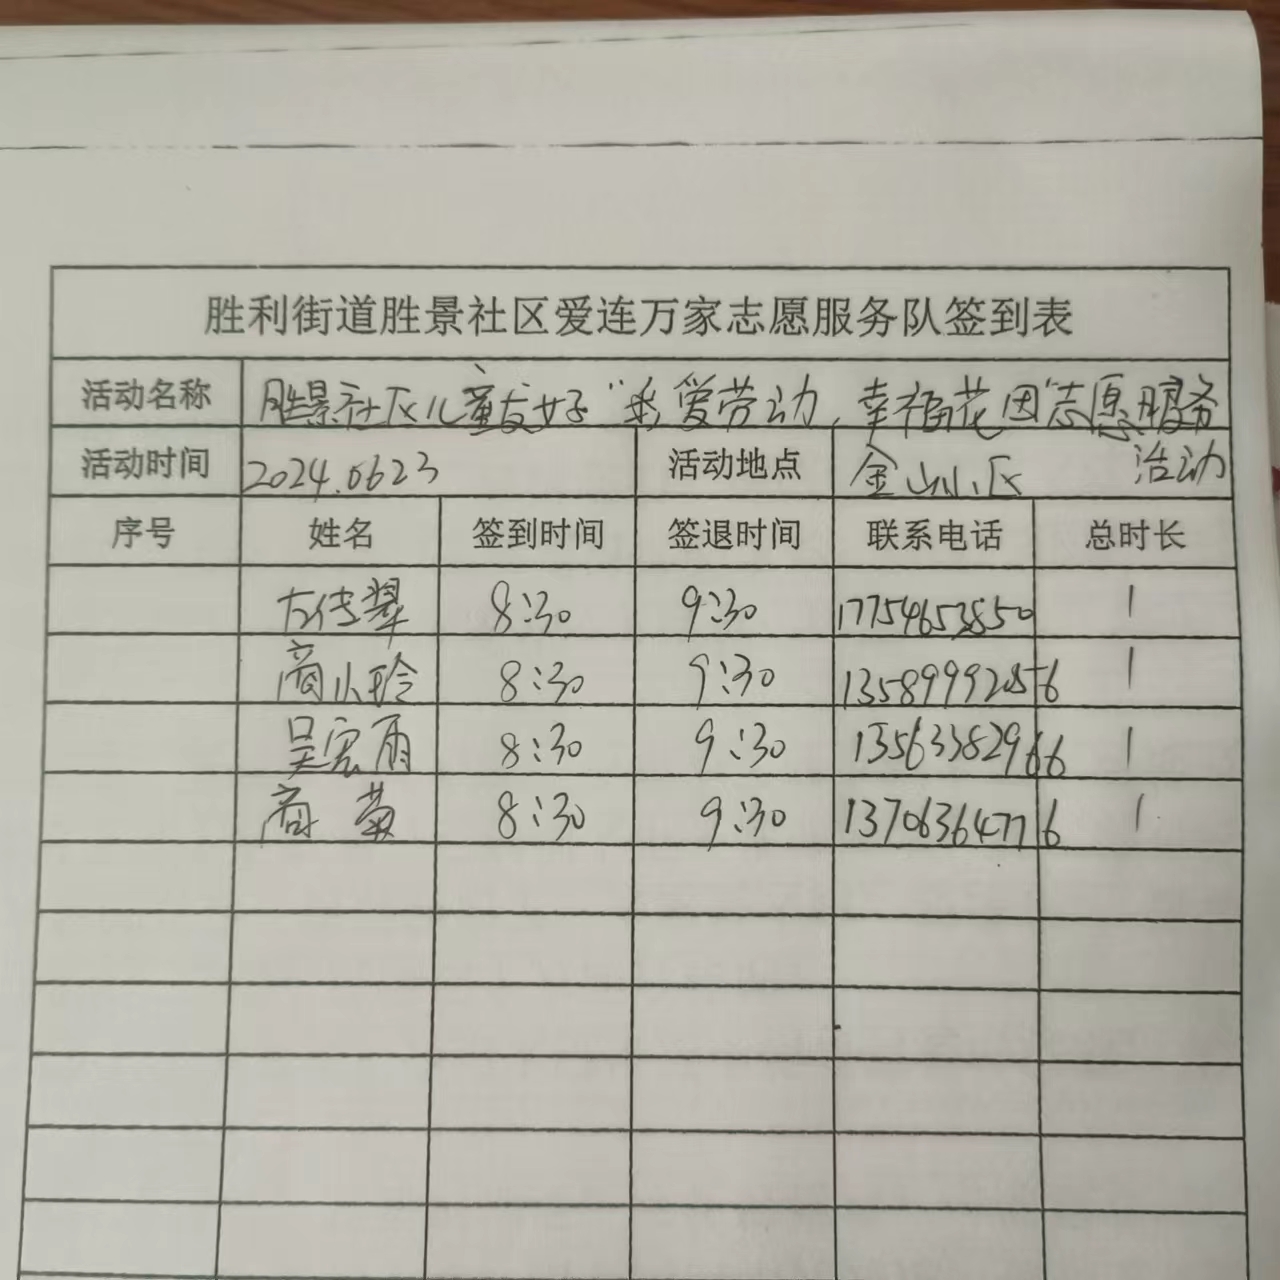 胜利街道胜景社区爱连万家志愿服务队签到表
活动名称 胜景社区儿童友好“我爱劳动,幸福花园”志愿服务
活动时间 2024.0623 活动地点 金山小区 活动
序号 姓名 签到时间 签退时间 联系电话 总时长
8:30 9:30 17754653850 1
商小玲 8:30 9:30 13589992856 1
吴宏雨 8:30 9:30 13563382966 1
商菊 8:30 9:30 13706364776 1